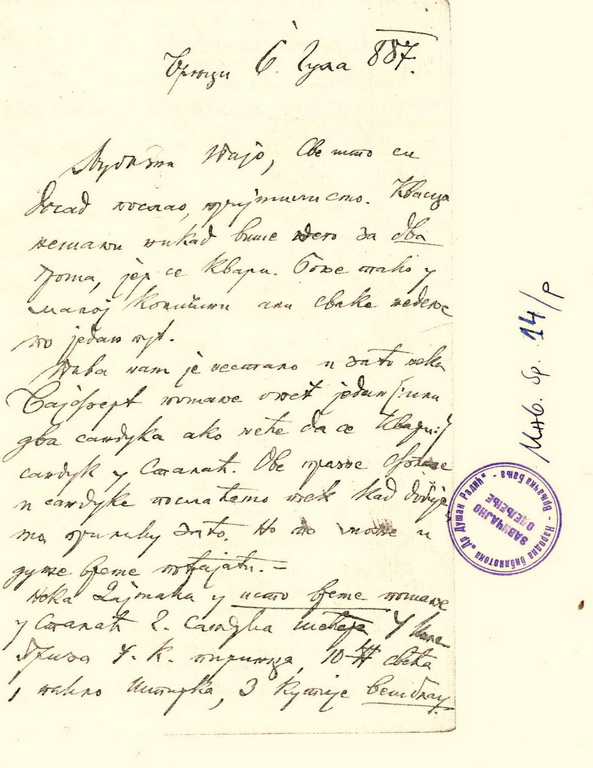 6. Јула 887.
Мајо, Све што си
досад послао, примили смо. Квасца
немањи никад више него за два
пута, јер се квари. Боље тако у
малој количини али сваке недеље
по један пут.
Пива нам је нестало и зато нека
Вајферт пошаље опет један или
два сандука ако неће да се квари у
сандук у Сталаћ. Ове празне
и сандуке послаћемо тек кад добије
мо прилику зато. Но то може и
дуже време потрајати. =
Нека Лајтаћи у исто време пошаље
у Сталаћ 2. сандука шећера, у
4. к. пиринџа, 10 свећа
1 пакло 3 кутије
Инв. бр. 14/Р
Народна библиотека „Др Душан Радић" - Врњачка Бања -
ЗАВИЧАЈНО
ОДЕЉЕЊЕ